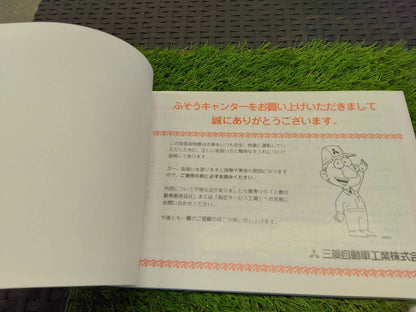 ふそうキャンターをお買い上げいただきまして
誠にありがとうございます。
この取扱説明書はお車をいつも安全、快適に運転してい
ただくために、正しい取扱い方と簡単な手入れについて
説明してあります。
万一、取扱いを誤りますと故障や事故の原因になります
ので、ご使用の前に必ずお読みください。
内容について不明な点がありましたら最寄りの「三菱自
動車販売会社」または「指定サービス工場」へお気軽に
お問い合わせください。
今後とも一層のご愛顧のほどお願い申し上げます。
三菱自動車工業株式会